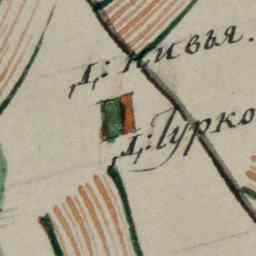 Д: Кивья.
Д: Турко